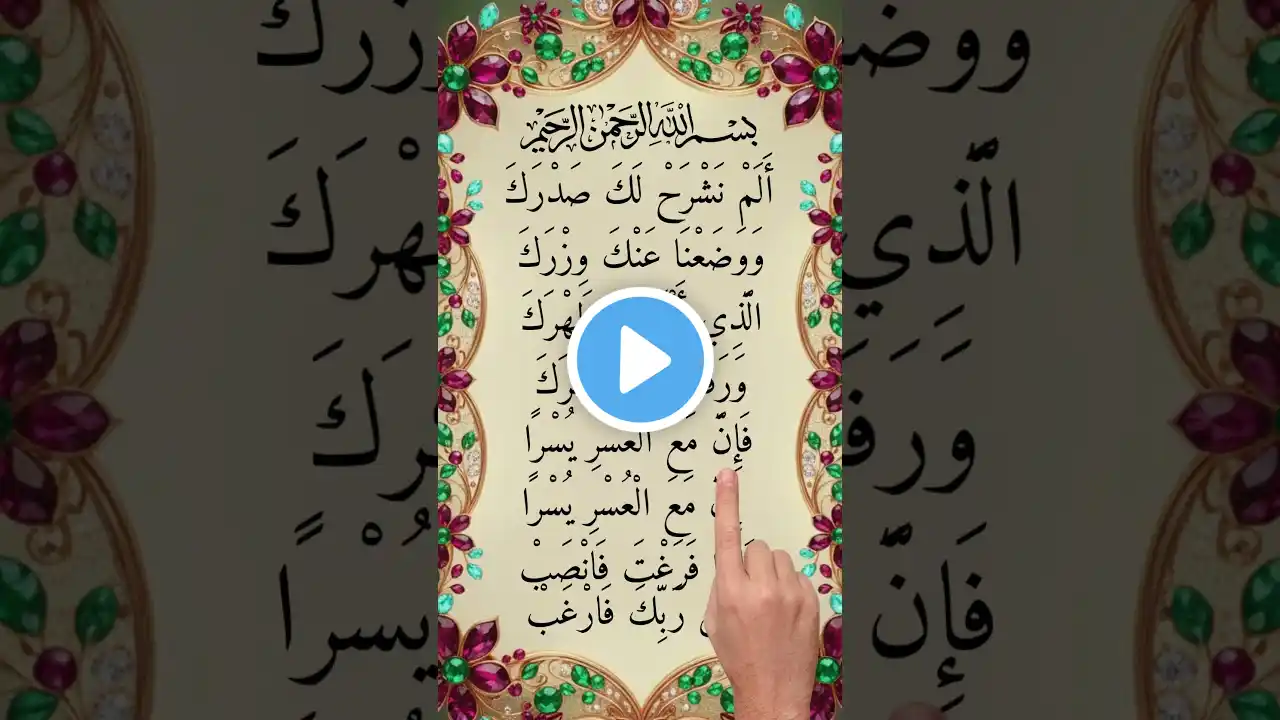 بِسْمِ اللَّهِ الرَّحْمَٰنِ الرَّحِيمِ
أَلَمْ نَشْرَحْ لَكَ صَدْرَكَ
وَوَضَعْنَا عَنْكَ وِزْرَكَ
الَّذِي
فَإِنَّ مَعَ الْعُسْرِ يُسْرًا
مَعَ الْعُسْرِ يُسْرًا
فَرَغْتَ فَانْصَبْ
رَبِّكَ فَارْغَبْ